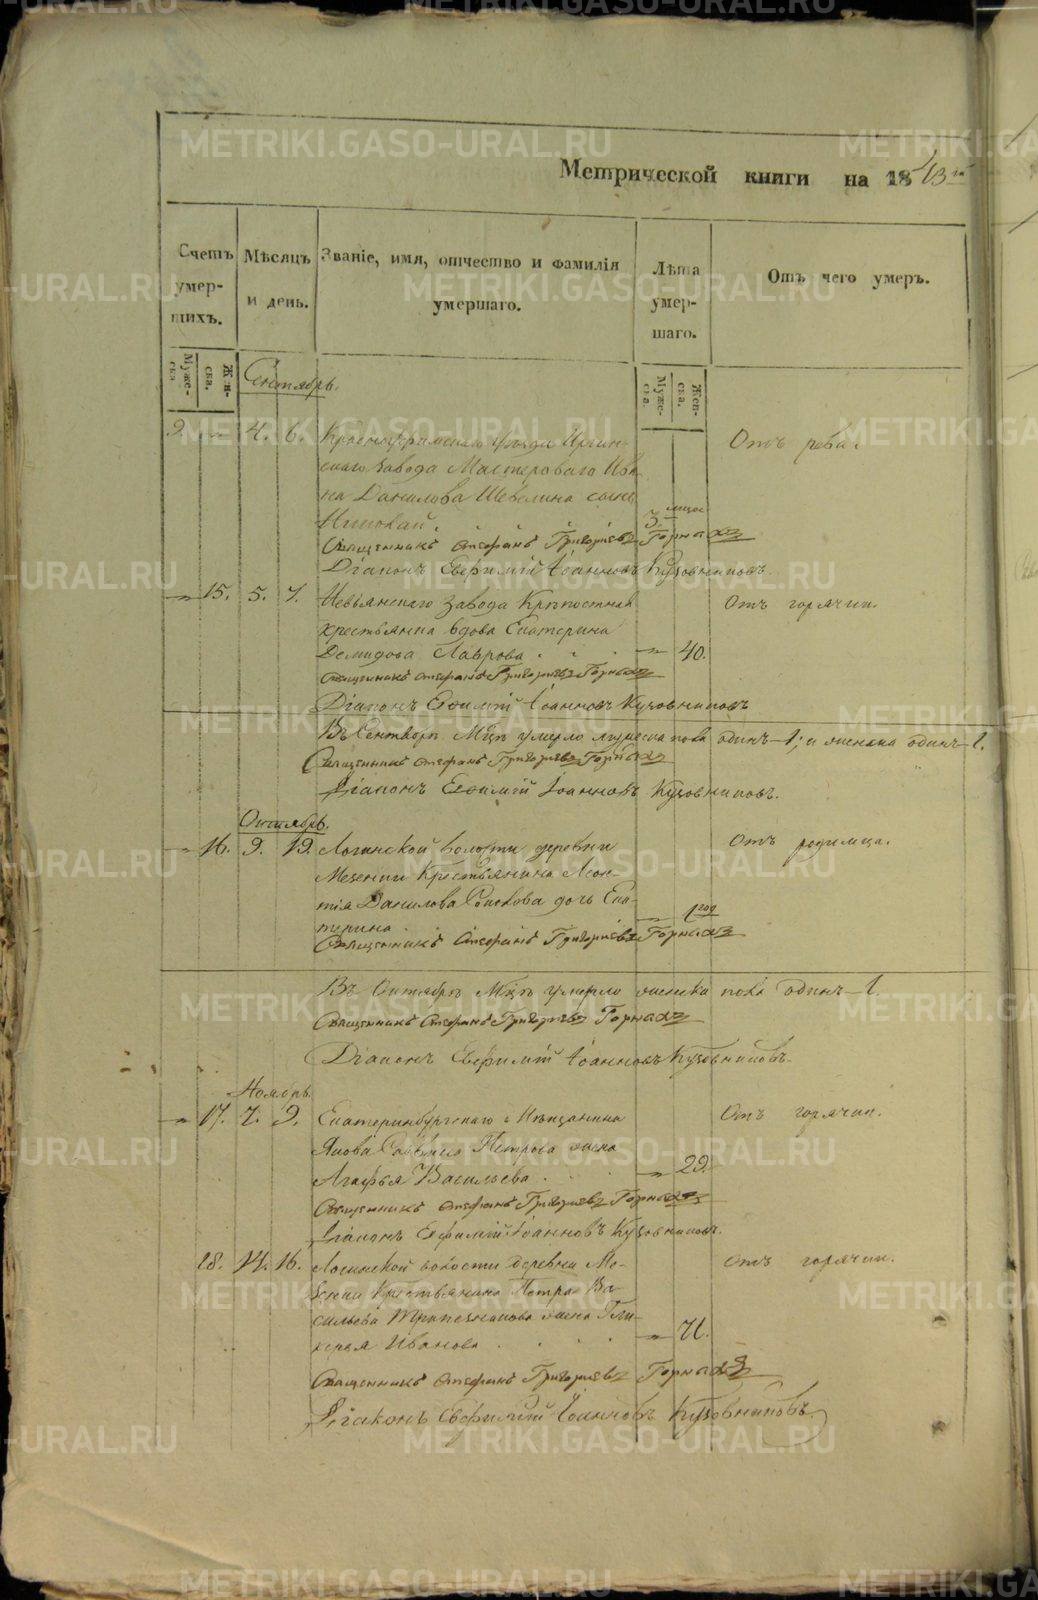 Метрической книги на 1843 гѡ
Счетъ умер-шихъ.
Муже-ска
Жен-ска.
Мѣсяцъ и день.
Званіе, имя, отчество и фамилія умершаго.
Лѣта умер-шаго.
Муже-ска.
Жен-ска.
Отъ чего умеръ.
Сентябрь.
9. 4. 6. Красноуфимскаго уѣзда Иргин-
скаго завода Мастероваго Ива-
на Данилова Шевелина сынъ
Николай. 3. мцов Отъ рева.
Священникъ Стефанъ Григорьевъ Горныхъ
Діаконъ Евфимій Іоанновъ Кузовниковъ.
15. 5. 7. Невьянскаго завода Крѣпостная
крестьянка вдова Екатерина
Демидова Лаврова. 40. Отъ горячки.
Священникъ Стефанъ Григорьевъ Горныхъ
Діаконъ Евфимій Іоанновъ Кузовниковъ
Въ Сентябрѣ Мцѣ умерло мужеска пола одинъ-1; и женска одинъ-1.
Священникъ Стефанъ Григорьевъ Горныхъ
Діаконъ Евфимій Іоанновъ Кузовниковъ.
Октябрь.
16. 9. 12. Логинской волости деревни
Мезенки Крестьянина Леон-
тія Данилова дочь Ека-
терина. 1 год Отъ родимца.
Священникъ Стефанъ Григорьевъ Горныхъ
Въ Октябрѣ Мцѣ умерло женска пола одинъ-1.
Священникъ Стефанъ Григорьевъ Горныхъ
Діаконъ Евфимій Іоанновъ Кузовниковъ.
Ноябрь.
17. 7. 9. Екатеринбургскаго Мѣщанина
Якова Петрова жена
Агафья Васильева. 29. Отъ горячки.
Священникъ Стефанъ Григорьевъ Горныхъ
Діаконъ Евфимій Іоанновъ Кузовниковъ.
18. 14. 16. Логинской волости деревни Ме-
зенки Крестьянина Петра Ва-
сильева Трапезникова жена Гли-
керья Иванова. 71. Отъ горячки.
Священникъ Стефанъ Григорьевъ Горныхъ
Діаконъ Евфимій Іоанновъ Кузовниковъ.
METRIKI.GASO-URAL.RU